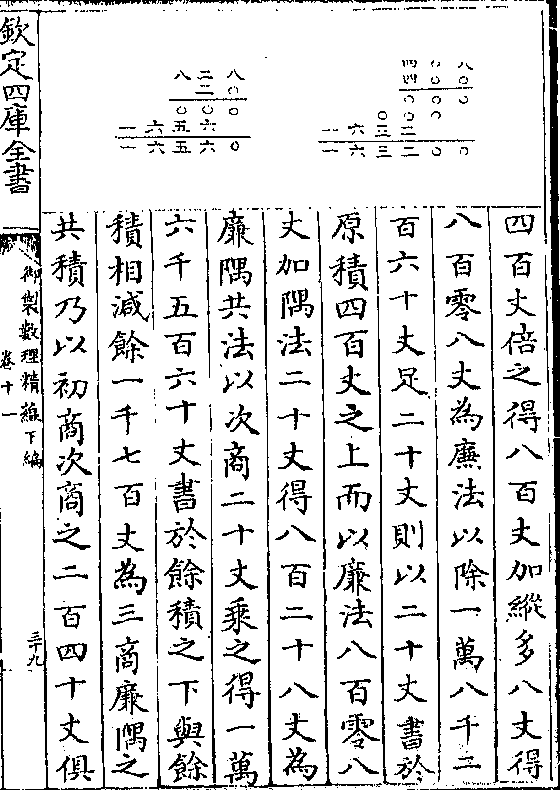 四〇八
四〇〇
〇〇〇
〇〇〇
一六三二
一六三二〇〇
八二八
二〇
〇〇〇
一六五六
一六五六〇
四百丈倍之得八百丈加縱多八丈得
八百零八丈為廉法以除一萬八千二
百六十丈足二十丈則以二十丈書於
原積四百丈之上而以廉法八百零八
丈加隅法二十丈得八百二十八丈為
廉隅共法以次商二十丈乘之得一萬
六千五百六十丈書於餘積之下與餘
積相減餘一千七百丈為三商廉隅之
共積乃以初商次商之二百四十丈俱
欽定四庫全書
御製數理精蘊下編
卷十一
三十九